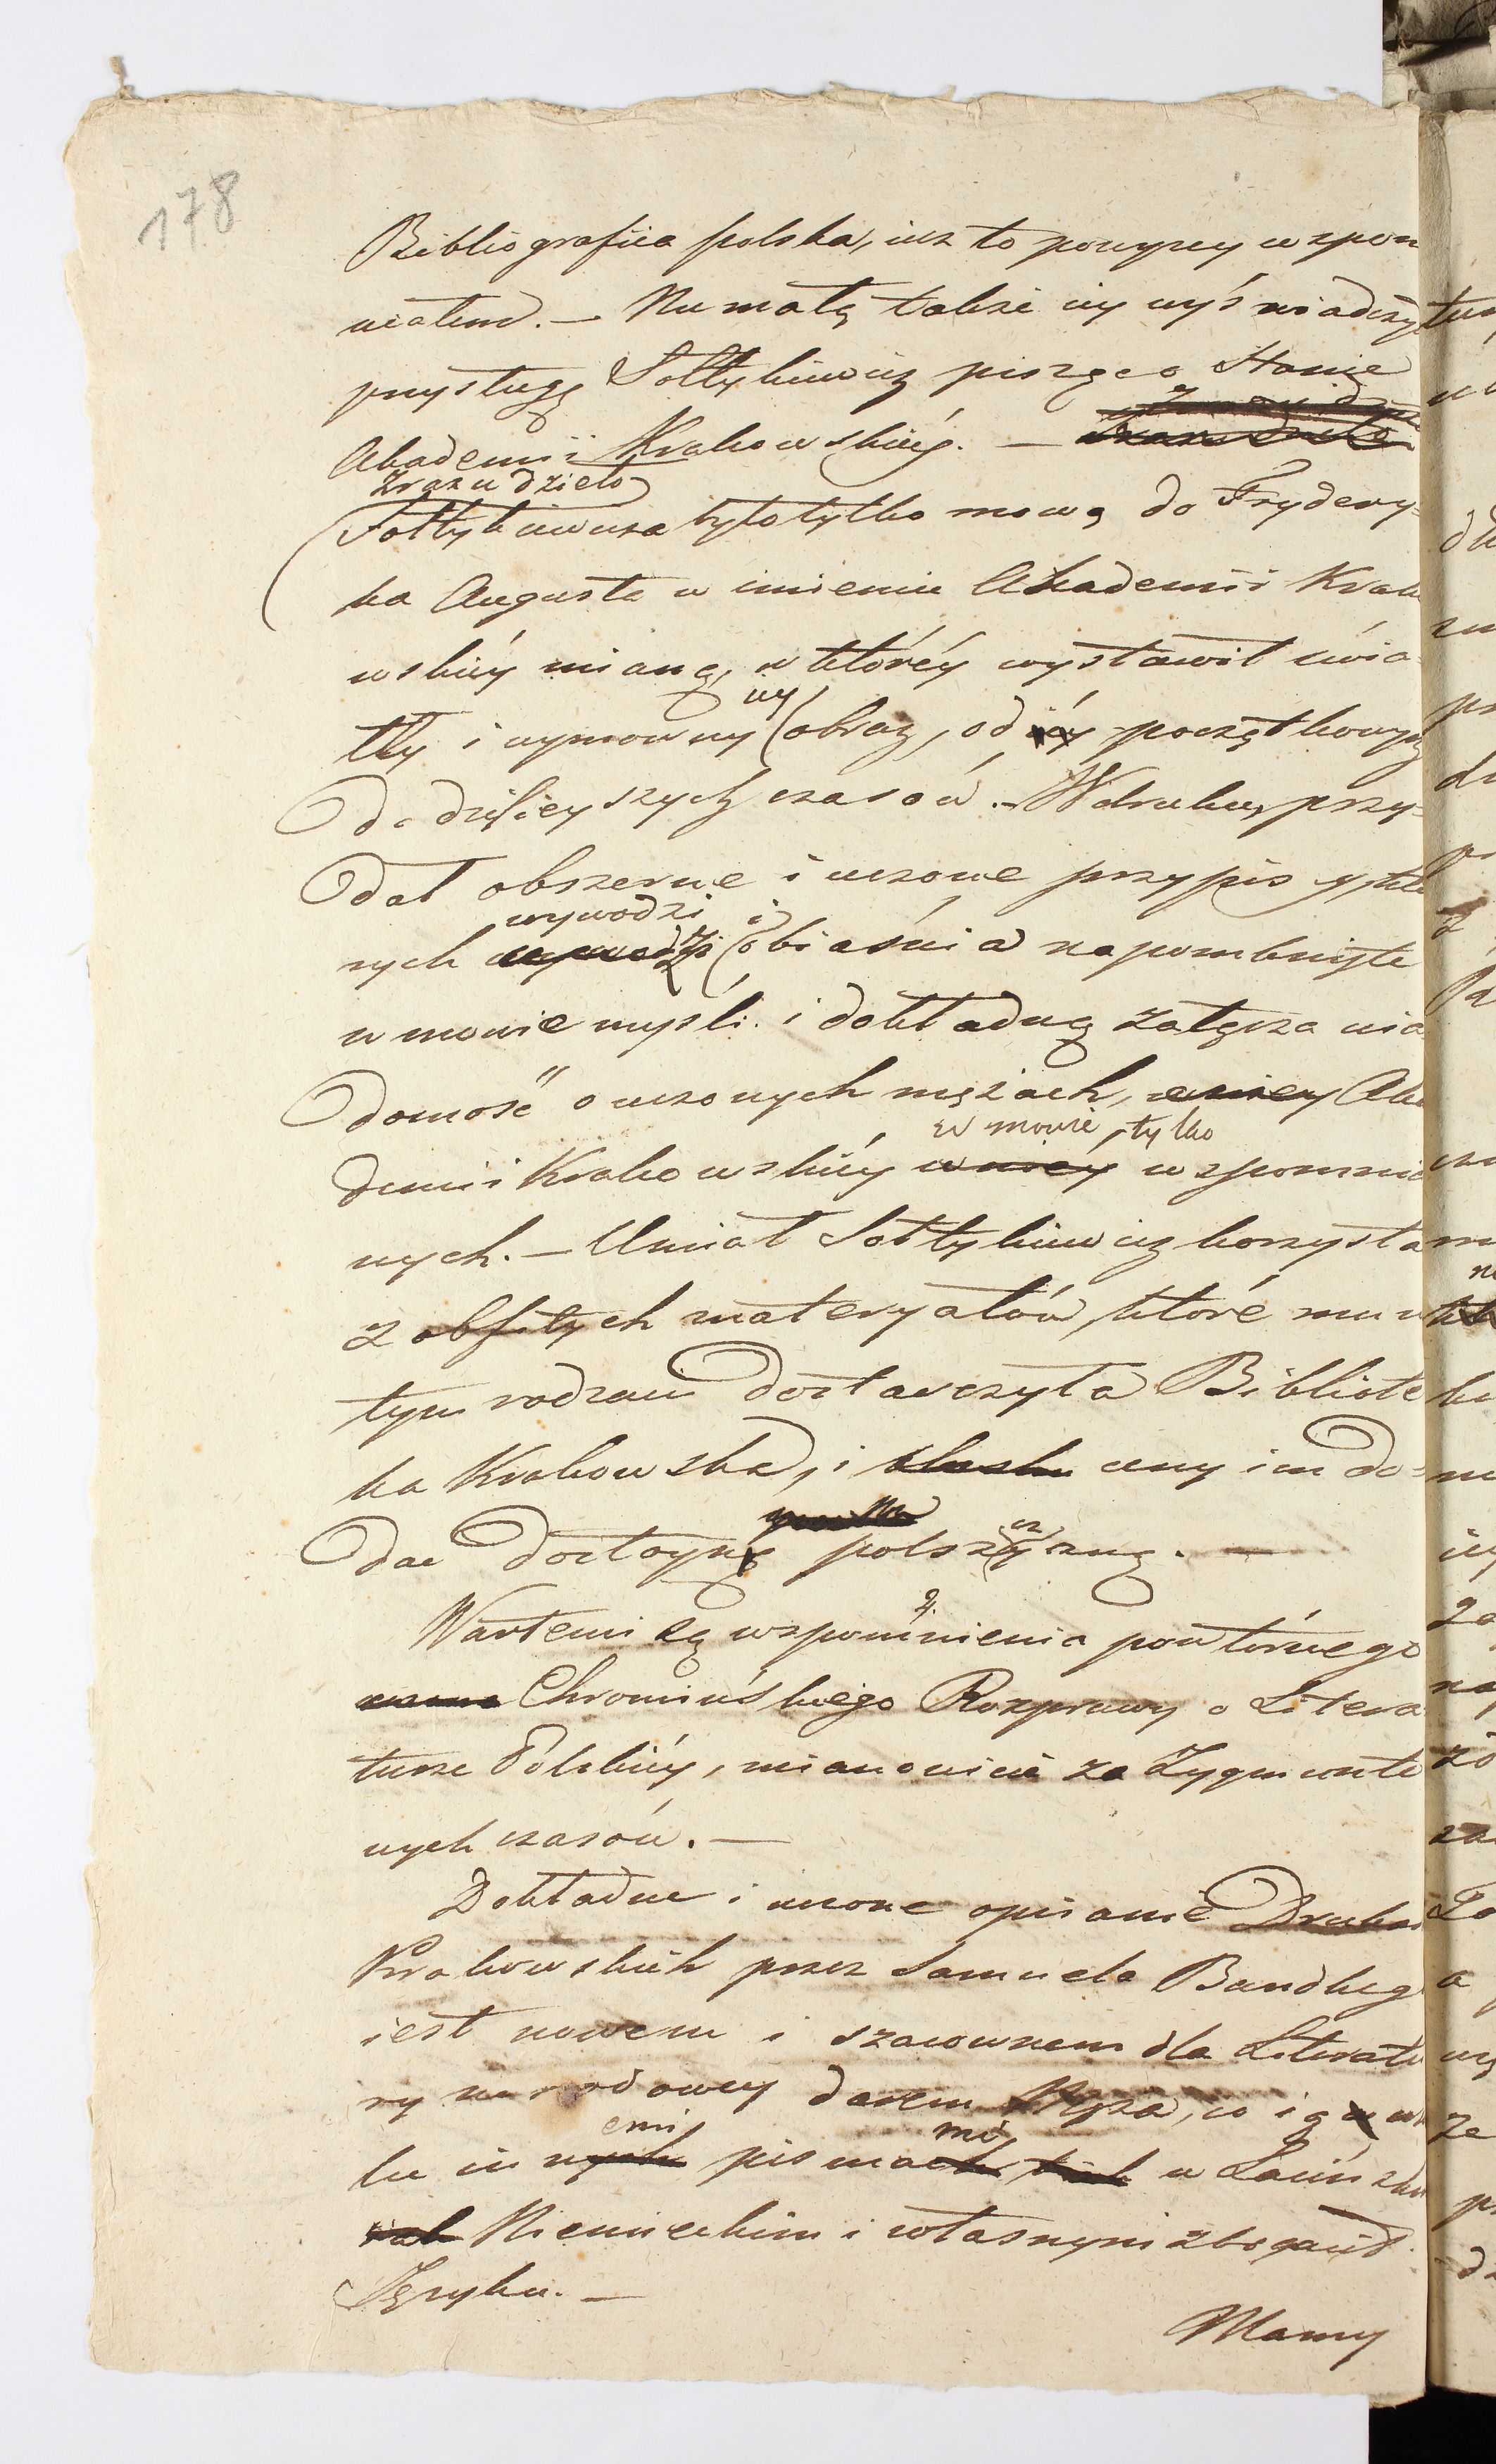 178
Bibliografiia polska, iuż to powyżey wspom
niałem. — Nie małą także iey wyświadczył
przysługę Sołtykiewicz pisząc o Stanie
Akademii Krakowskiéy. —
Zrazu dzieło
Sołtykiewicza było tylko mową do Frydery=
ka Augusta w imieniu Akademii Krako
wskiéy mianą, w któréy wystawił świa=
tły i wymowny iéy obraz, od początkowych
do dzisieyszych czasów. — W druku przy=
dał obszerne i uczone przypisy, w któ
rych wywodzi i obiaśnia napomknięte
w mowie myśli i dokładną załącza wia
domość o uczonych mężach, Aka
demii Krakowskiéy w mowie tylko wspomnio
nych. — Umiał Sołtykiewicz korzystać
z obfitych materyałów, które mu w
tym rodzaiu dostarczyła Bibliote
ka Krakowska, i umy im do=
dać dostoyną polszczyzną. —
Wartemi są wspomnienia powtórnego
Chromińskiego Rozprawy o Litera
turze Polskiéy, mianowicie za Zygmunto
wych czasów. —
Dokładne i uczone opisanie Drukar
Krakowskich przez Samuela Bandkieg
iest nowem i szacownem dla Literatu
ry narodowey darem Męża, co ią
lu innemi pismami w Łacińskim
Niemieckim i własnym zbogacił
Języku. —
Mamy